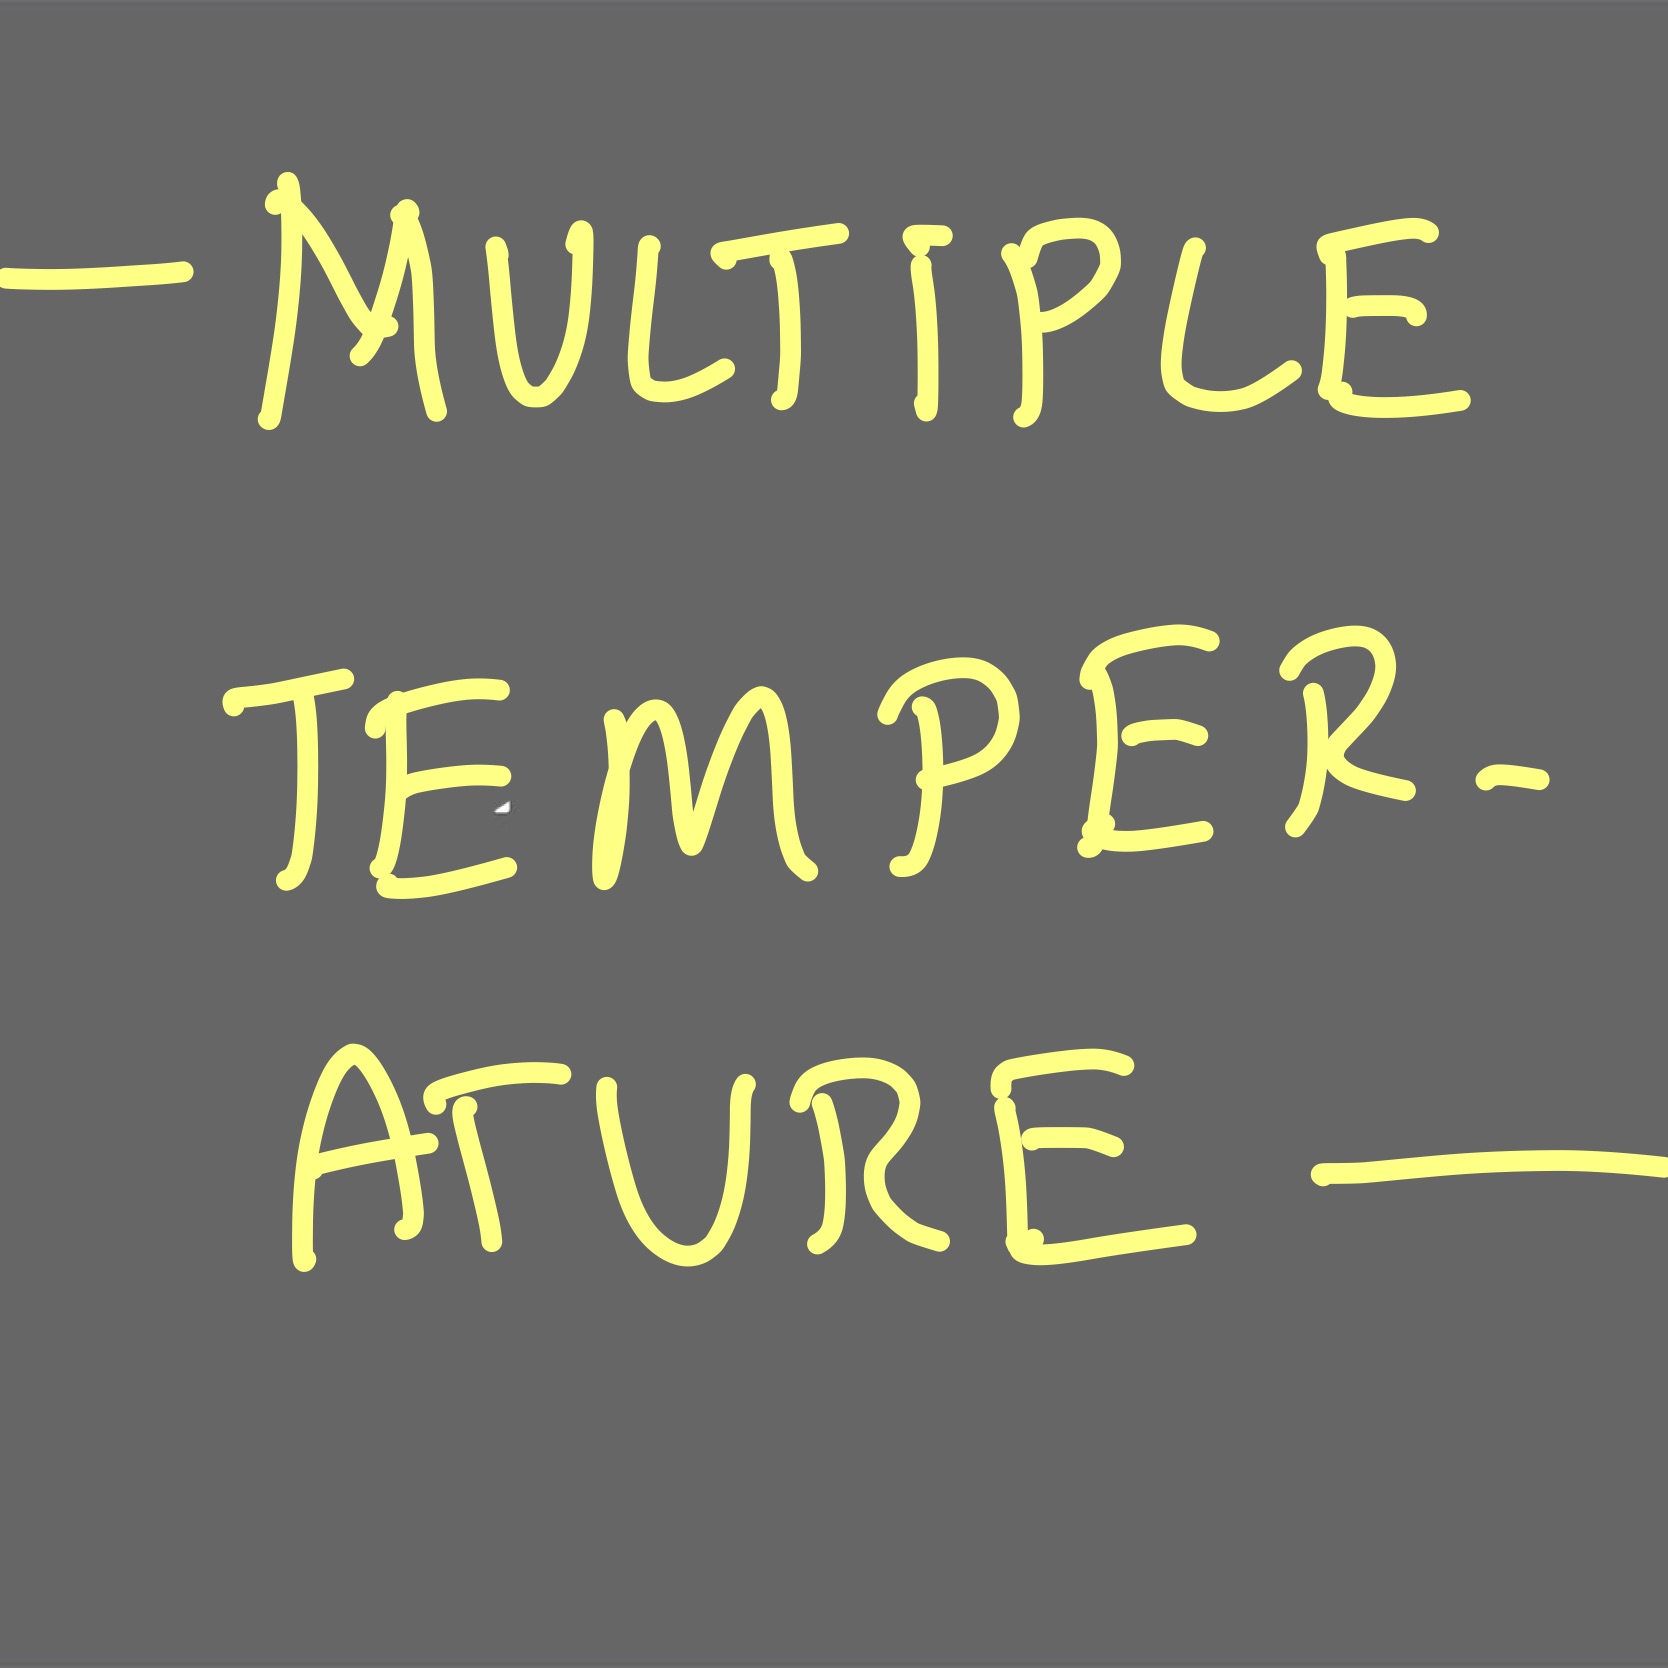 — MULTIPLE
TEMPER-
ATURE —